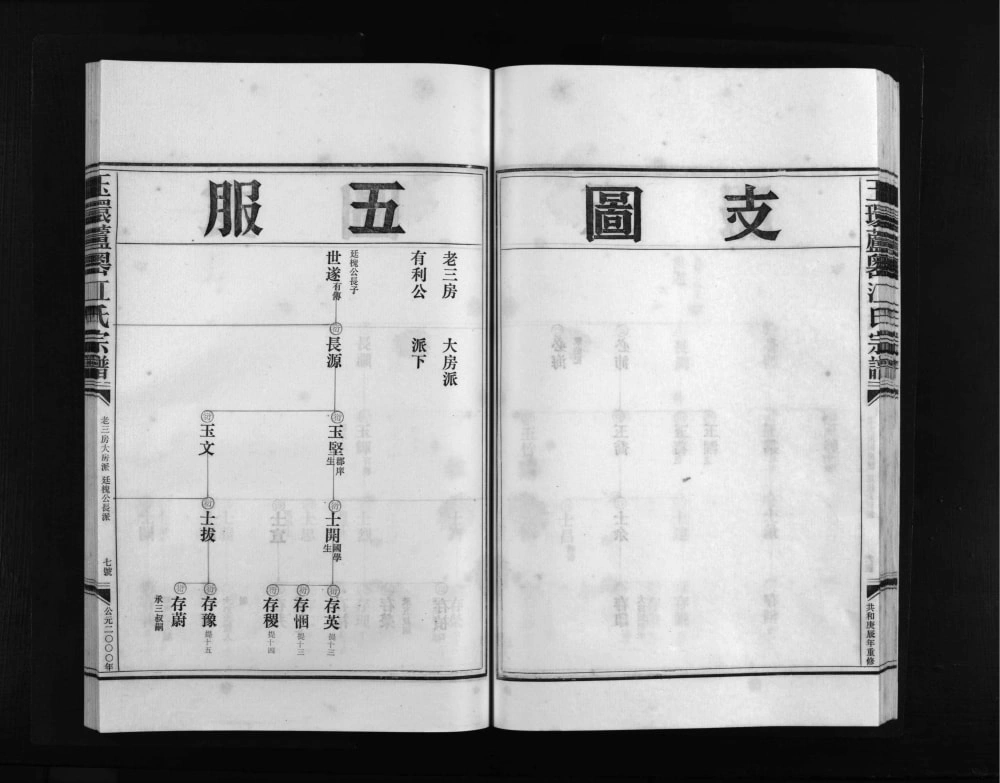 支圖
共和庚辰年重修
五服
老三房 大房派
有利公 派下
廷槐公長子
世遂有傳
長源
玉堅郡庠生
玉文
士開國學生
士拔
存英
存悃
存稷
存豫
存蔚
承三叔嗣
提十三
提十三
提十四
提十五
玉環蘆嶴江氏宗譜
老三房大房派 廷槐公長派
七號
公元二〇〇〇年